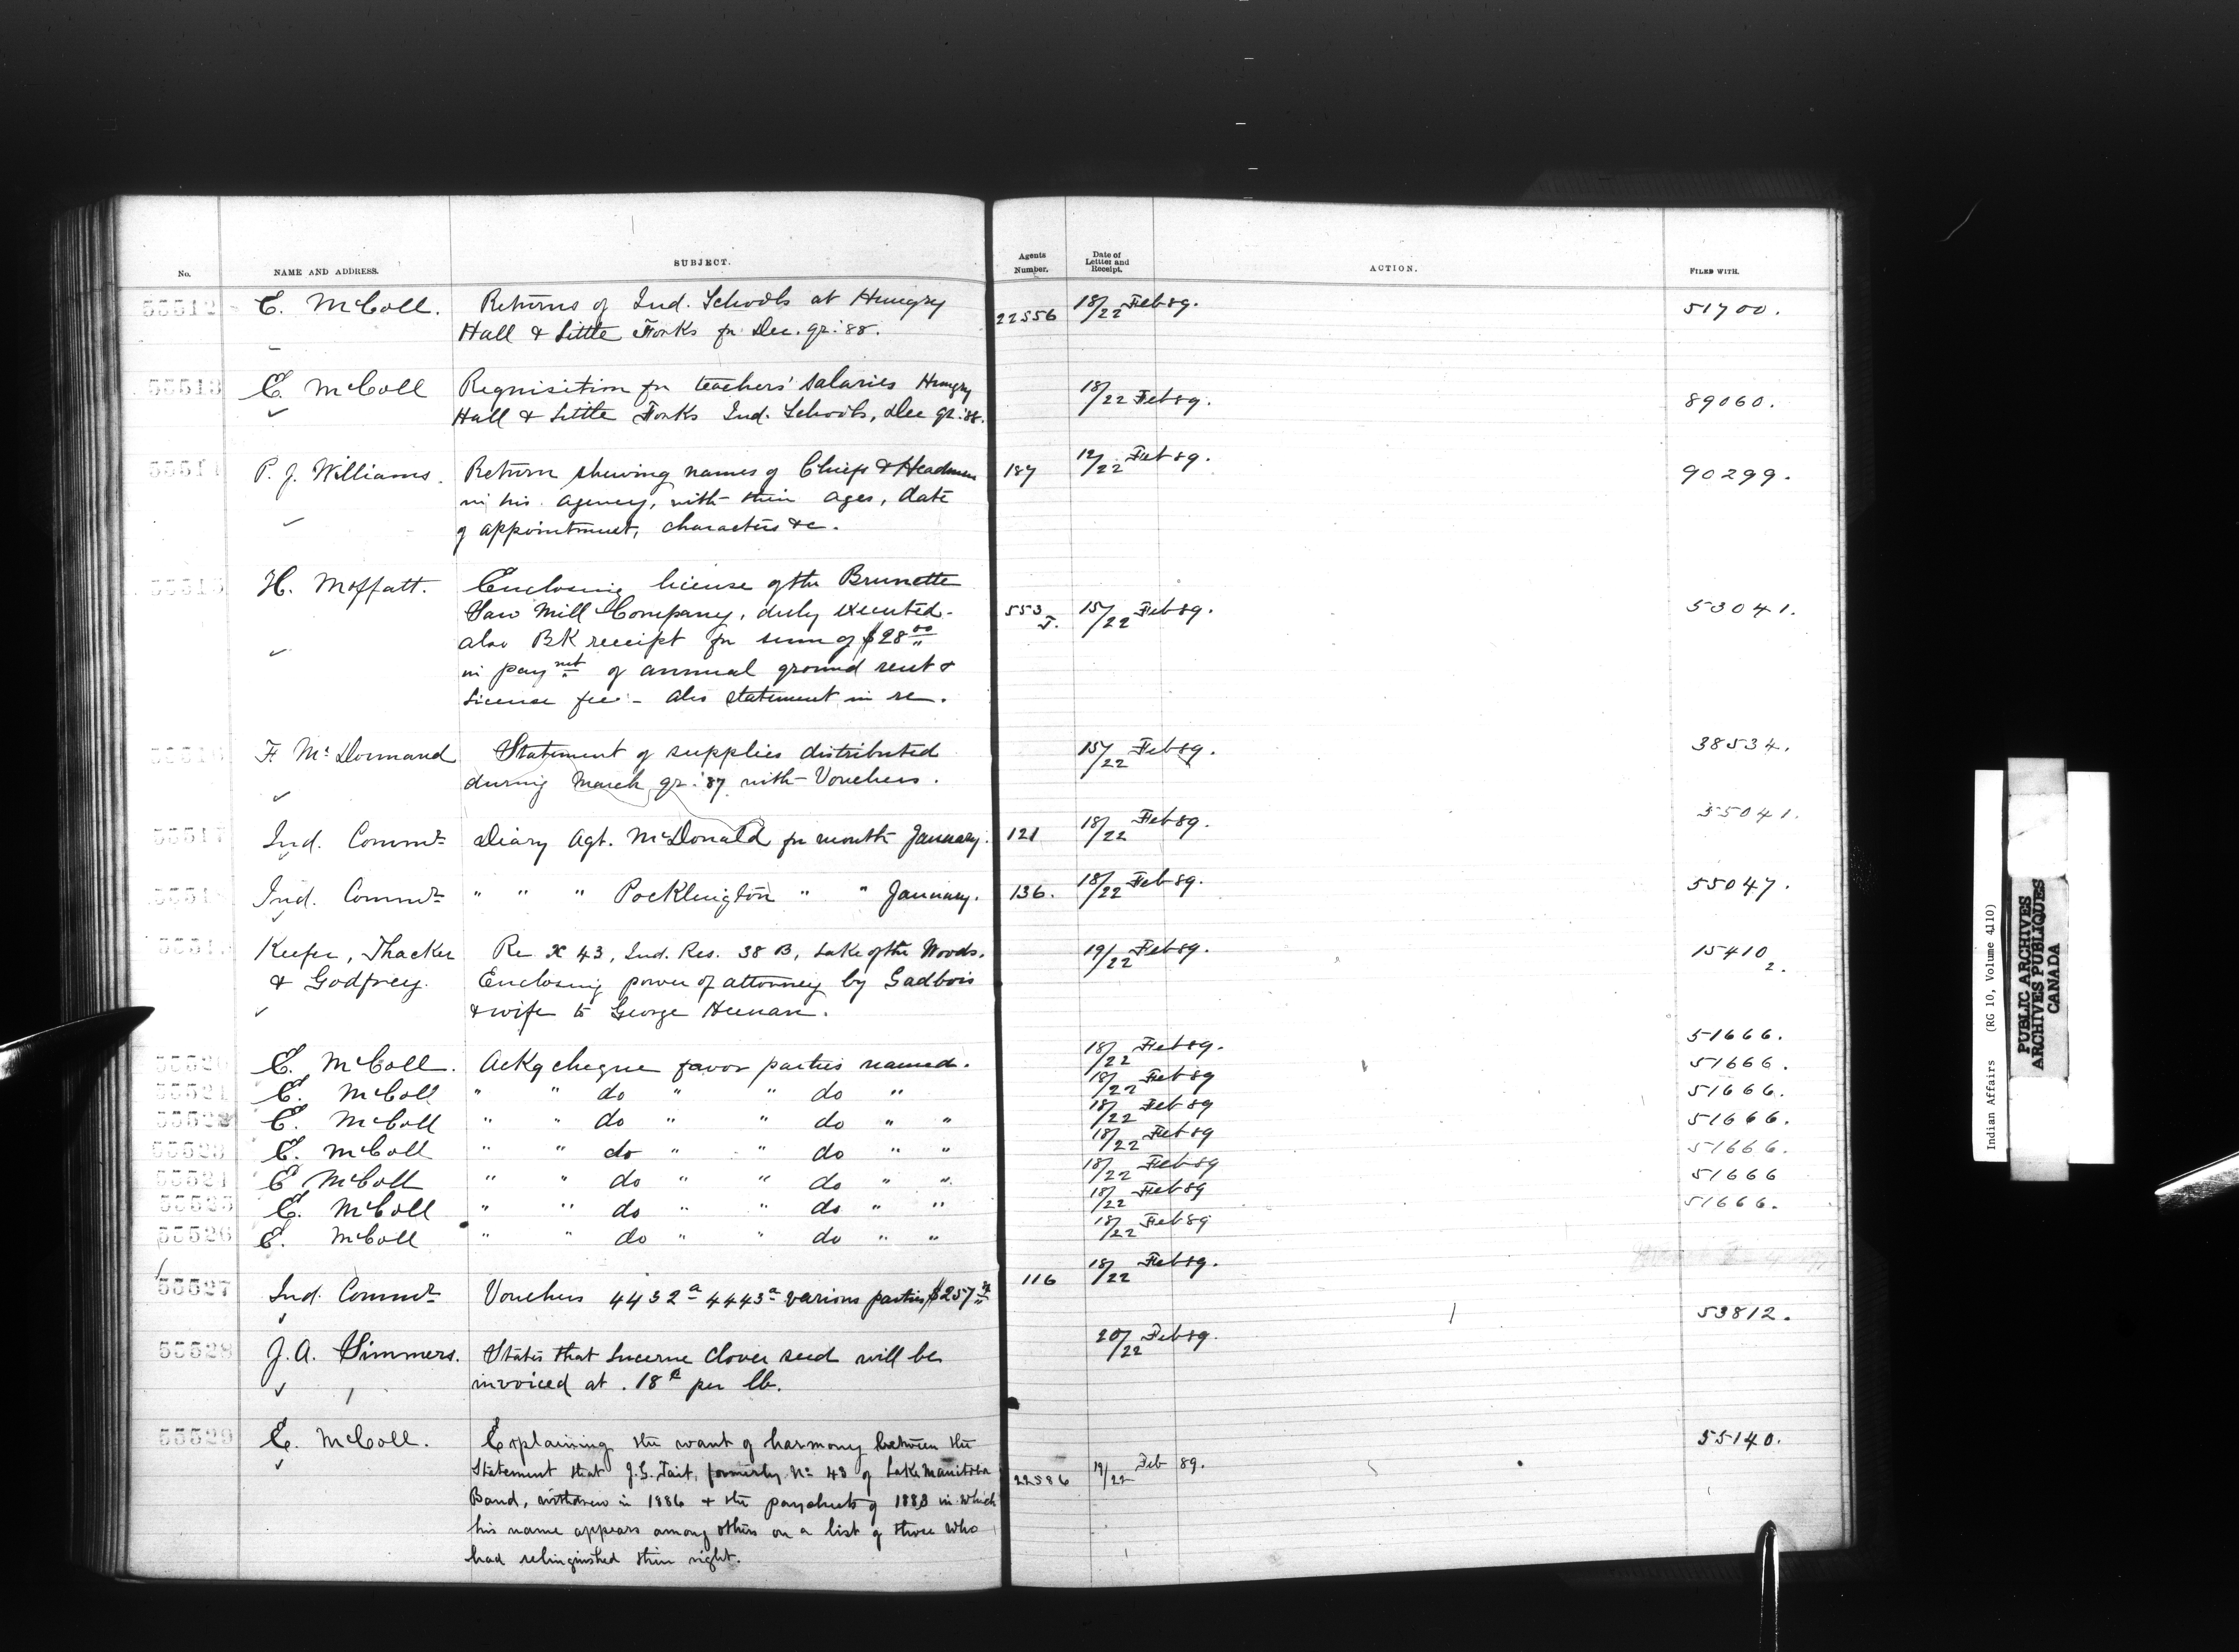 No. NAME AND ADDRESS. SUBJECT. Agents Number. Date of Letter and Receipt. ACTION. FILED WITH.
55512 E. McColl. Returns of Ind. Schools at Hungry 22556 18/22 Feb 89. 51700.
Hall & Little Forks for Dec. qr. '88.
55513 E. McColl Requisition for teachers' salaries Hungry 18/22 Feb 89. 89060.
Hall & Little Forks Ind. Schools, Dec qr. '88.
55514 P. J. Williams. Return shewing names of Chiefs & Headmen 187 12/22 Feb 89. 90299.
in his agency, with their ages, date
of appointment, characters &c.
55515 H. Moffatt. Enclosing license of the Brunette
Saw Mill Company, duly executed. 553 J. 15/22 Feb 89. 53041.
also BK receipt for sum of $28 00
in paymt of annual ground rent &
License fee - also statement in re.
55516 F. McDormand Statement of supplies distributed 15/22 Feb 89. 38534.
during March qr. '87 with Vouchers.
55517 Ind. Commr Diary Agt. McDonald for month January. 121 18/22 Feb 89. 55041.
55518 Ind. Commr " " " Pocklington " " January. 136. 18/22 Feb 89. 55047.
55519 Keefer, Thacker Re X 43, Ind. Res. 38 B, Lake of the Woods. 19/22 Feb 89. 15410 2.
& Godfrey. Enclosing power of attorney by Gadbois
& wife to George Heenan.
55520 E. McColl. Ackg cheque favor parties named. 18/22 Feb 89. 51666.
55521 E. McColl " " do " " do " 18/22 Feb 89 51666.
55522 E. McColl " " do " " do " " 18/22 Feb 89 51666.
55523 E. McColl " " do " " do " " 18/22 Feb 89 51666.
55524 E McColl " " do " " do " " 18/22 Feb 89 51666.
55525 E. McColl " " do " " do " " 18/22 Feb 89 51666
55526 E. McColl " " do " " do " " 18/22 Feb 89 51666.
55527 Ind. Commr Vouchers 4432a 4443a various parties, $257 116 18/22 Feb 89.
55528 J. A. Simmers. States that Lucerne Clover seed will be 20/22 Feb 89. 53812.
invoiced at .18c per lb.
55529 E. McColl. Explaining the want of harmony between the 55140.
Statement that J. G. Tait, formerly No 43 of Lake Manitoba 22586 19/22 Feb 89.
Band, withdrew in 1886 & the paysheets of 1883 in which
his name appears among others on a list of those who
had relinquished their right.
Indian Affairs (RG 10, Volume 4110)
PUBLIC ARCHIVES
ARCHIVES PUBLIQUES
CANADA